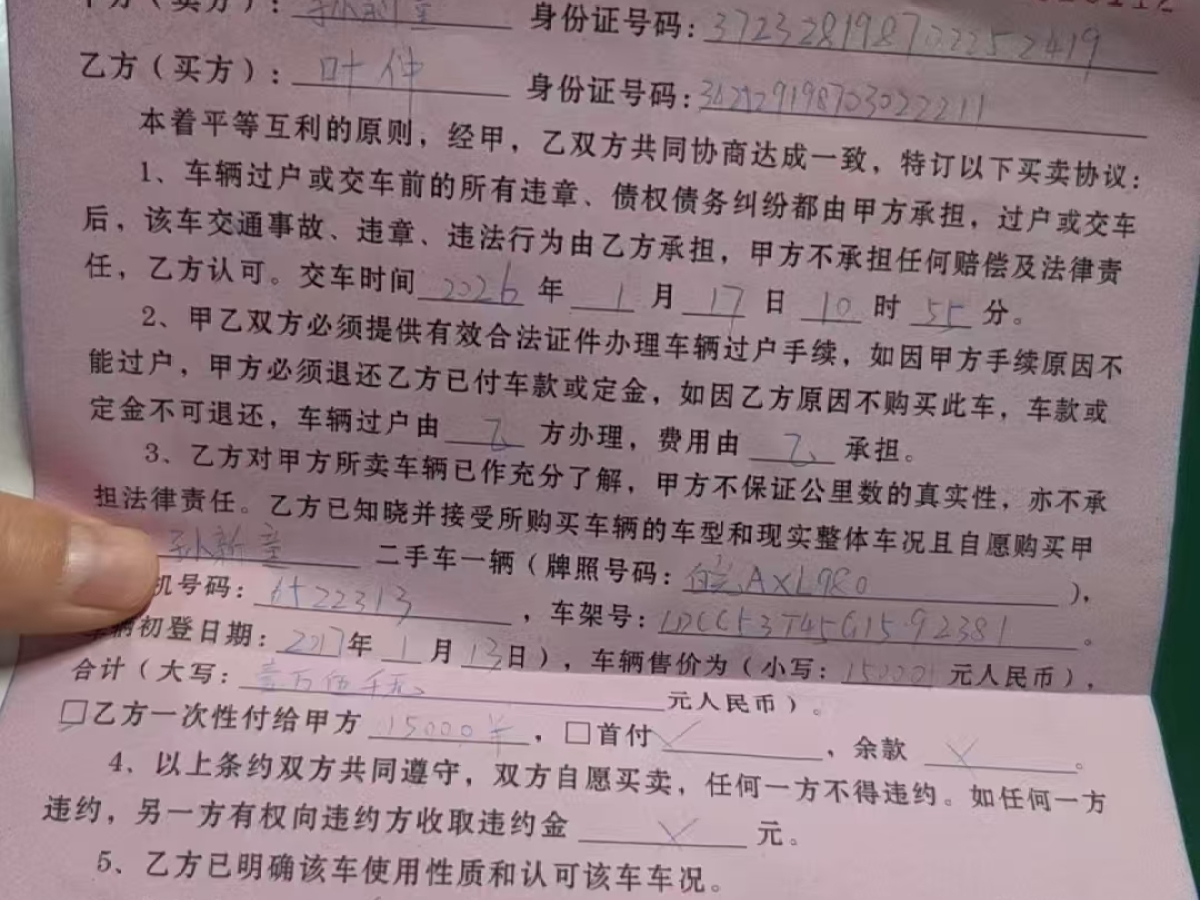 甲方(卖方): 孙新童 身份证号码: 372328198702252419
乙方(买方): 叶仲 身份证号码:
本着平等互利的原则,经甲,乙双方共同协商达成一致,特订以下买卖协议:
1、车辆过户或交车前的所有违章、债权债务纠纷都由甲方承担,过户或交车
后,该车交通事故、违章、违法行为由乙方承担,甲方不承担任何赔偿及法律责
任,乙方认可。交车时间 2026 年 1 月 17 日 10 时 55 分。
2、甲乙双方必须提供有效合法证件办理车辆过户手续,如因甲方手续原因不
能过户,甲方必须退还乙方已付车款或定金,如因乙方原因不购买此车,车款或
定金不可退还,车辆过户由 乙 方办理,费用由 乙 承担。
3、乙方对甲方所卖车辆已作充分了解,甲方不保证公里数的真实性,亦不承
担法律责任。乙方已知晓并接受所购买车辆的车型和现实整体车况且自愿购买甲
孙新童 二手车一辆(牌照号码: 皖AXL980 ),
机号码: 6522313 ,车架号: 。
车辆初登日期: 2017年 1 月 13日),车辆售价为(小写: 15000 元人民币),
合计(大写: 壹万伍千元 元人民币)。
□乙方一次性付给甲方 15000 ,□首付 ,余款 。
4、以上条约双方共同遵守,双方自愿买卖,任何一方不得违约。如任何一方
违约,另一方有权向违约方收取违约金 元。
5、乙方已明确该车使用性质和认可该车车况。